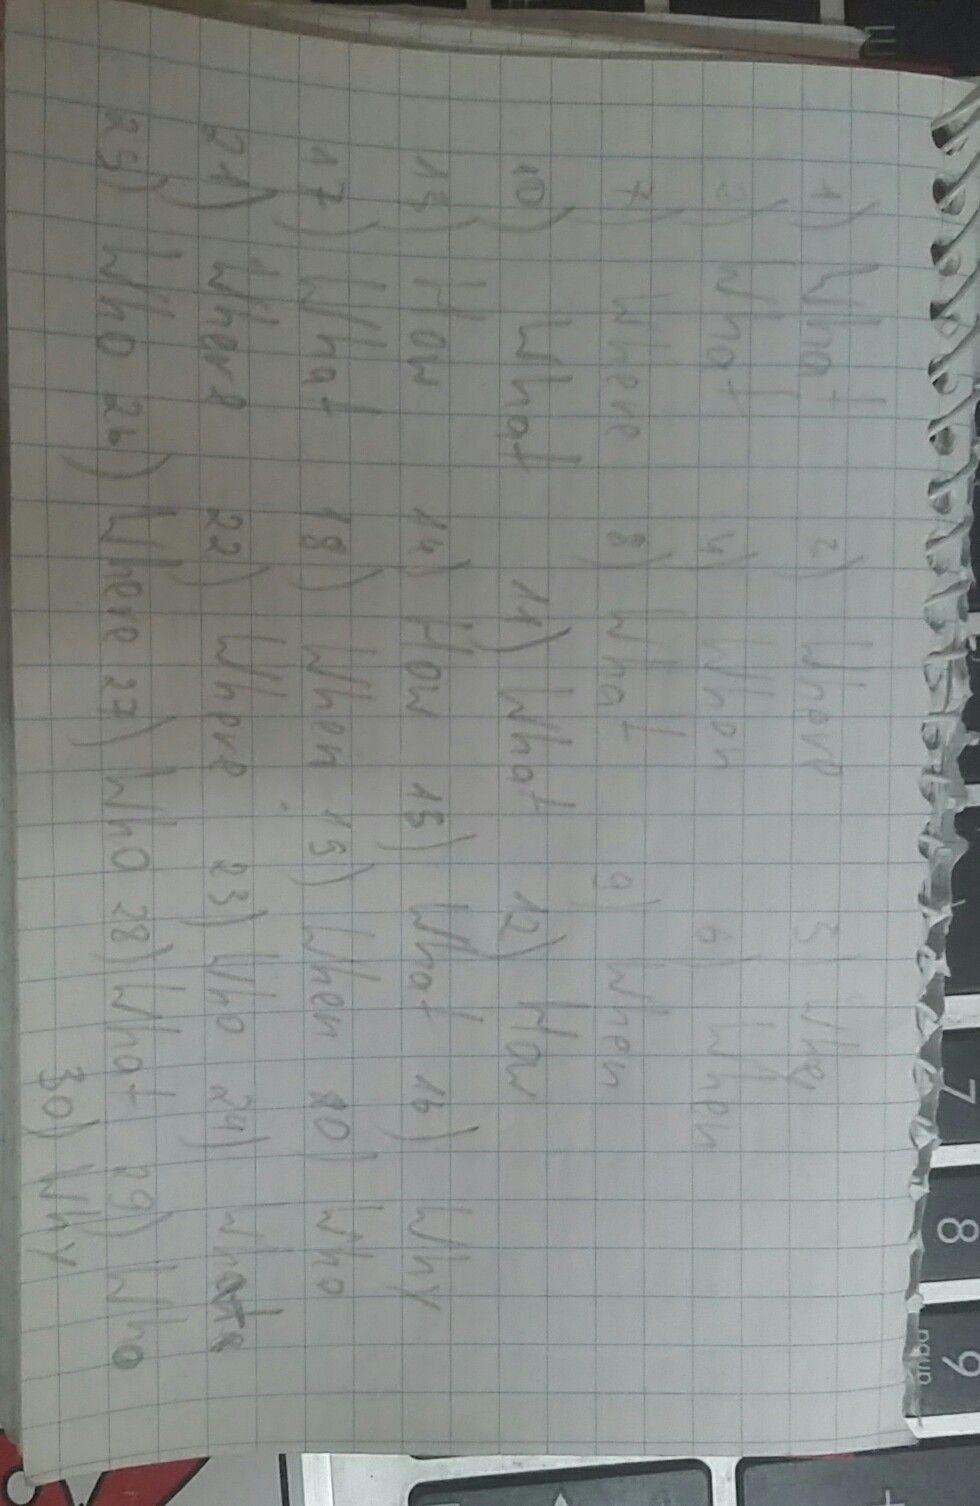 1) What 2) Where 3) Whe
2) What 4) When 6) When
7) Where 8) What 9) When
10) What 11) What 12) How
13) How 14) How 15) What 16) Why
17) What 18) When 19) When 20) Who
21) Where 22) Where 23) Who 24)
25) Who 26) Where 27) Who 28) What 29) Who
30) Why
7
8
9
pgup